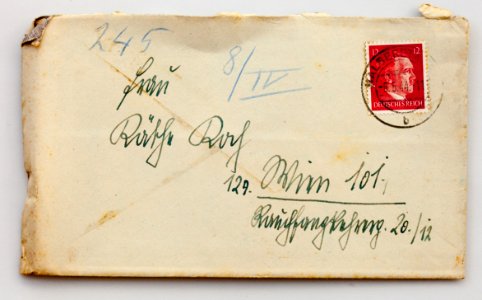 245
8/IV
12 12
DEUTSCHES REICH
b
Frau
Käthe Koch
129. Wien 101.
Rauchfangkehrerg. 20./12